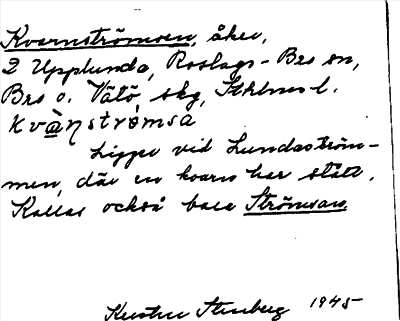 Kvarnströmsen, åker,
2 Upplunda, Roslags-Bro sn,
Bro o. Vätö skg, Sthlms l.
kvàŋstrømsa
Ligger vid Lundaström-
men, där en kvarn har stått.
Kallas också bara Strömsan
Kerstin Stenberg 1945